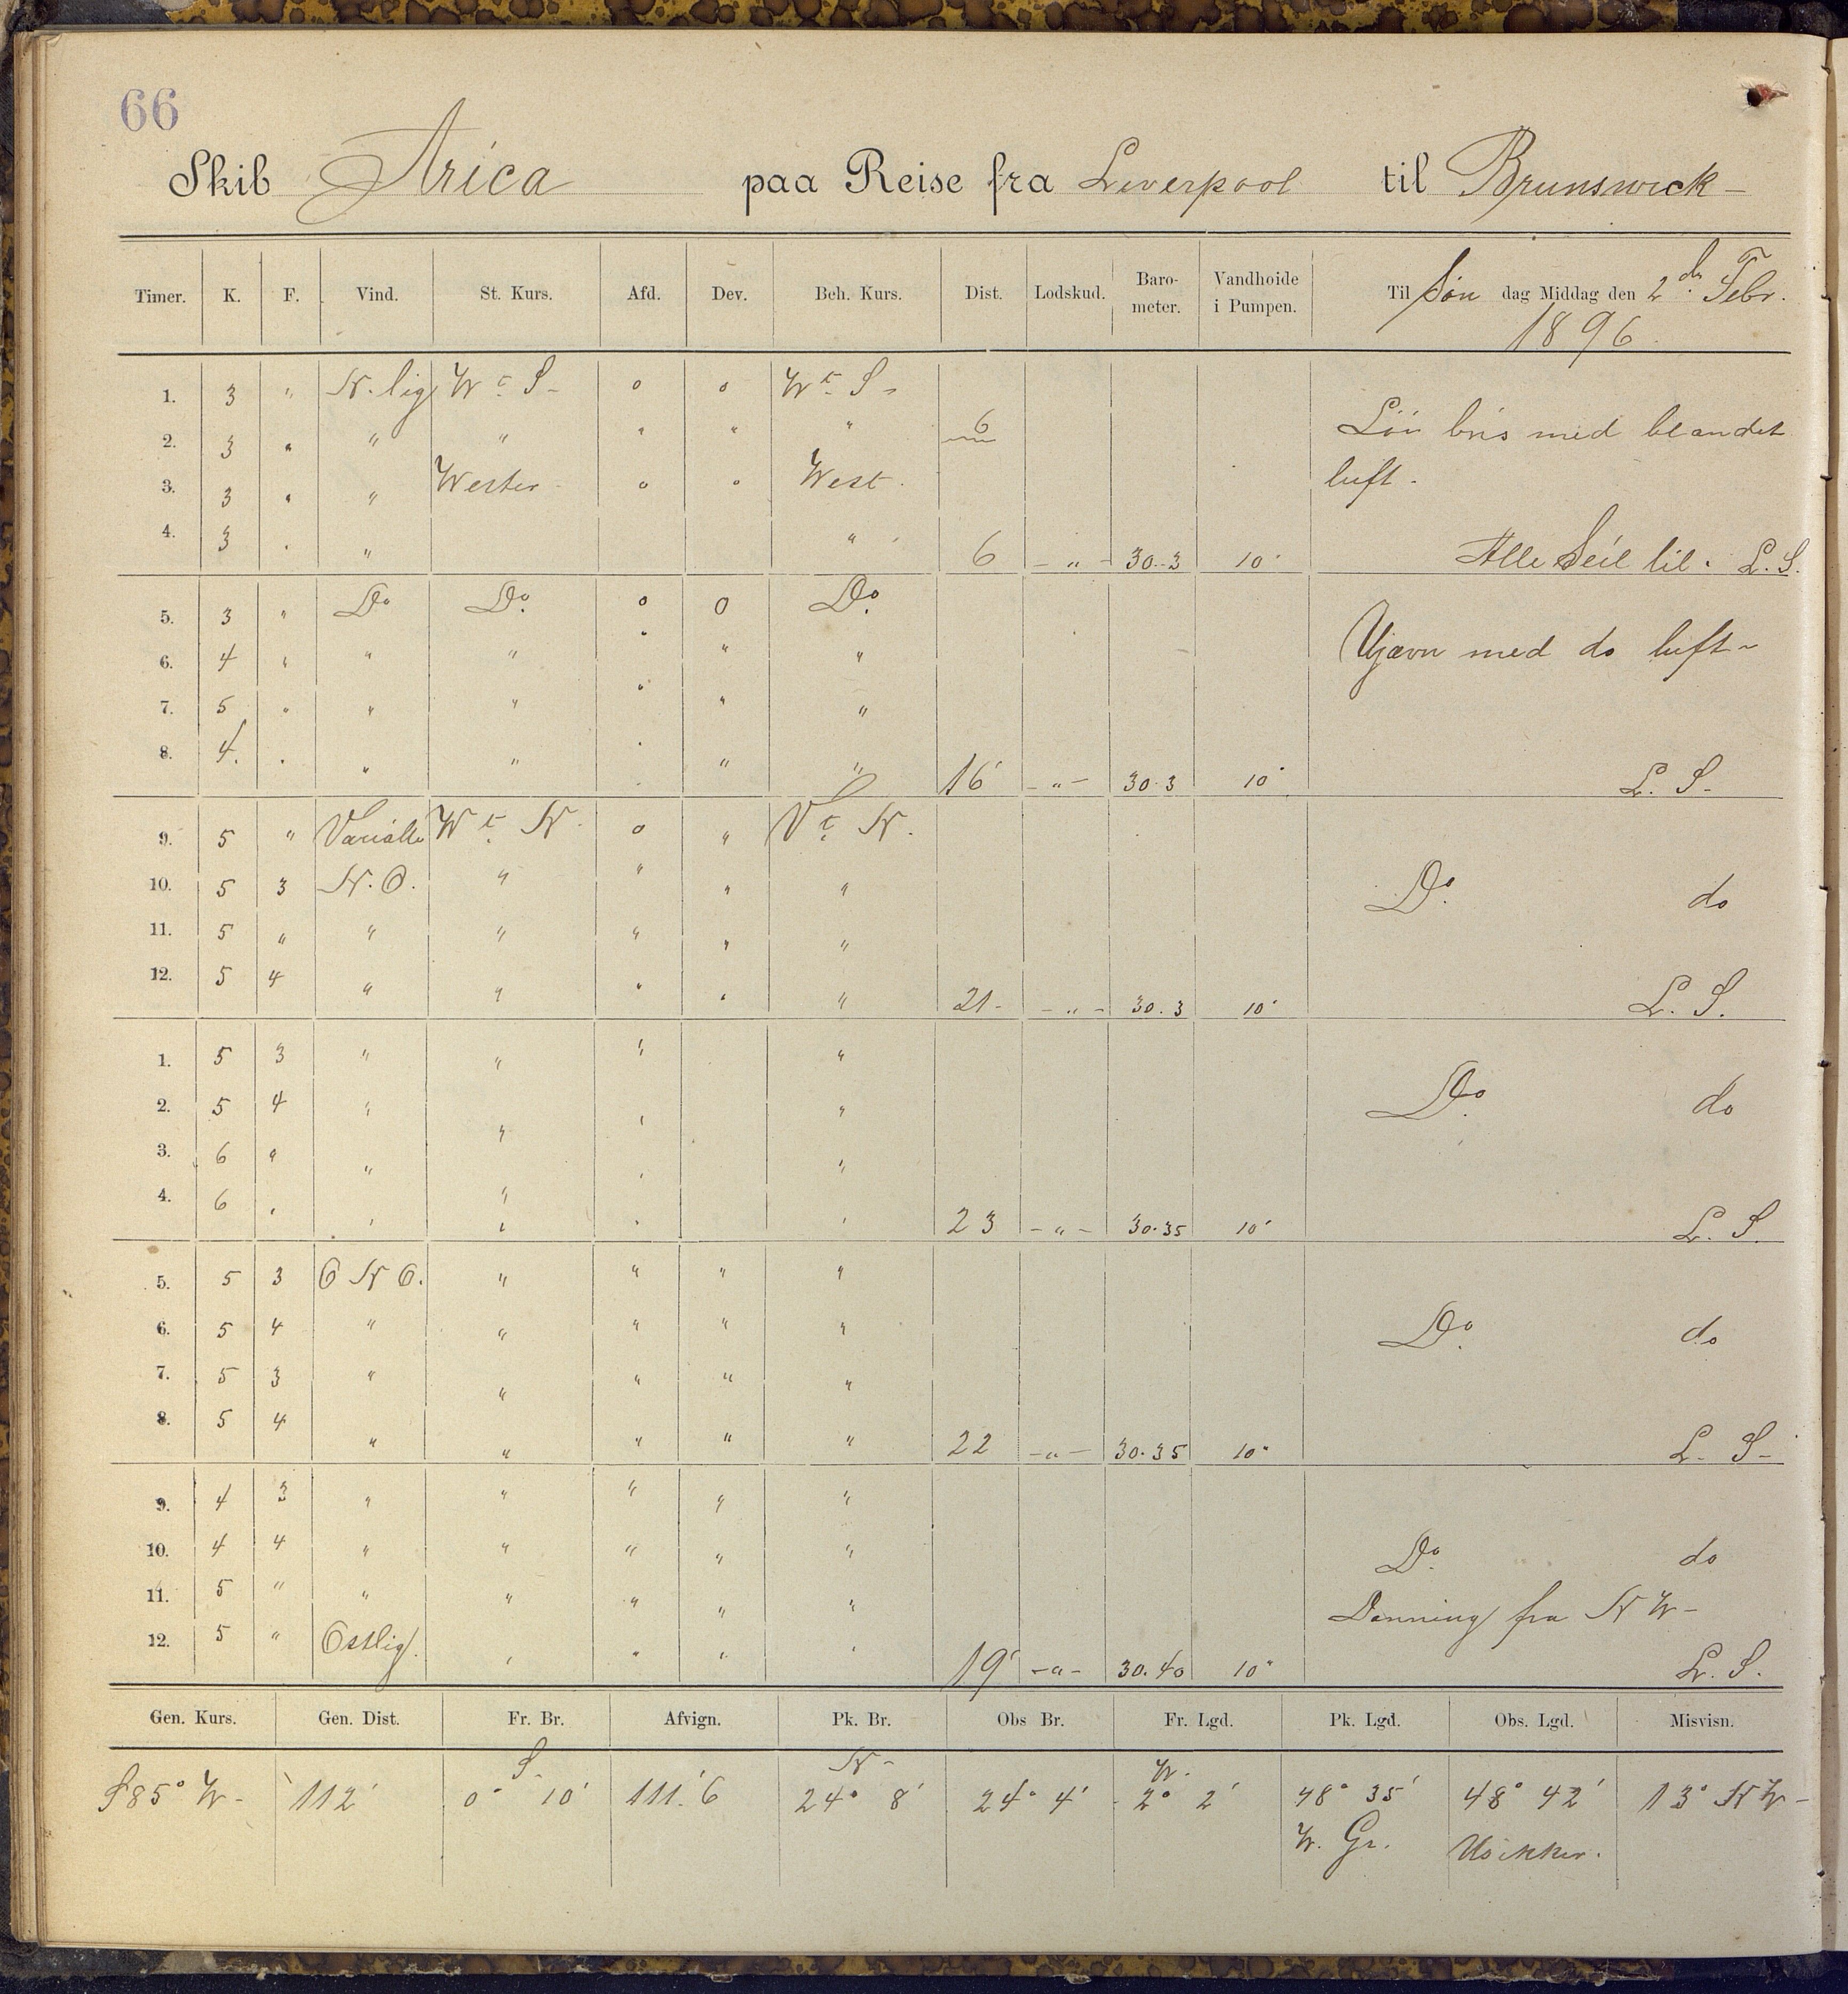 66
Skib Arica paa Reise fra Liverpool til Brunswick
Timer. K. F. Vind. St. Kurs. Afd. Dev. Beh. Kurs. Dist. Lodskud. Baro-meter. Vandhoide i Pumpen. Til Søn dag Middag den 2den Febr. 1896
1. 3 " N. lig W t. S - o o W t. S -
2. 3 " " " " " " 6 Løi bris med blandet
3. 3 " " Wester o o West. luft.
4. 3 " " " 6 - " - 30.3 10" Alle Seil til. L. S.
5. 3 " Do Do o o Do
6. 4 " " " " " " Ujævn med do luft -
7. 5 " " " " " "
8. 4. " " " " " " 16 - " - 30.3 10" L. S.
9. 5 " Variable W t. N. o " V t. N.
10. 5 3 N. O. " " " " Do do
11. 5 " " " " " "
12. 5 4 " " " " " 21 - " - 30.3 10" L. S.
1. 5 3 " " " "
2. 5 4 " " " " Do do
3. 6 " " " "
4. 6 " " " " " 23 - " - 30.35 10" L. S.
5. 5 3 O N O. " " " "
6. 5 4 " " " " " Do do
7. 5 3 " " " " "
8. 5 4 " " " " " 22 - " - 30.35 10" L. S.
9. 4 3 " " " " "
10. 4 4 " " " " " Do do
11. 5 " " " " " " Dønning fra N W -
12. 5 " Ostlig. " " " " 19 - " - 30.40 10" L. S.
Gen. Kurs. Gen. Dist. Fr. Br. Afvign. Pk. Br. Obs Br. Fr. Lgd. Pk. Lgd. Obs. Lgd. Misvisn.
S. N - W.
S 85° W - 112' 0° 10' 111.'6 24° 8' 24° 4' 2° 2' 48° 35' 48° 42' 13° N W -
W. Gr. Usikker.